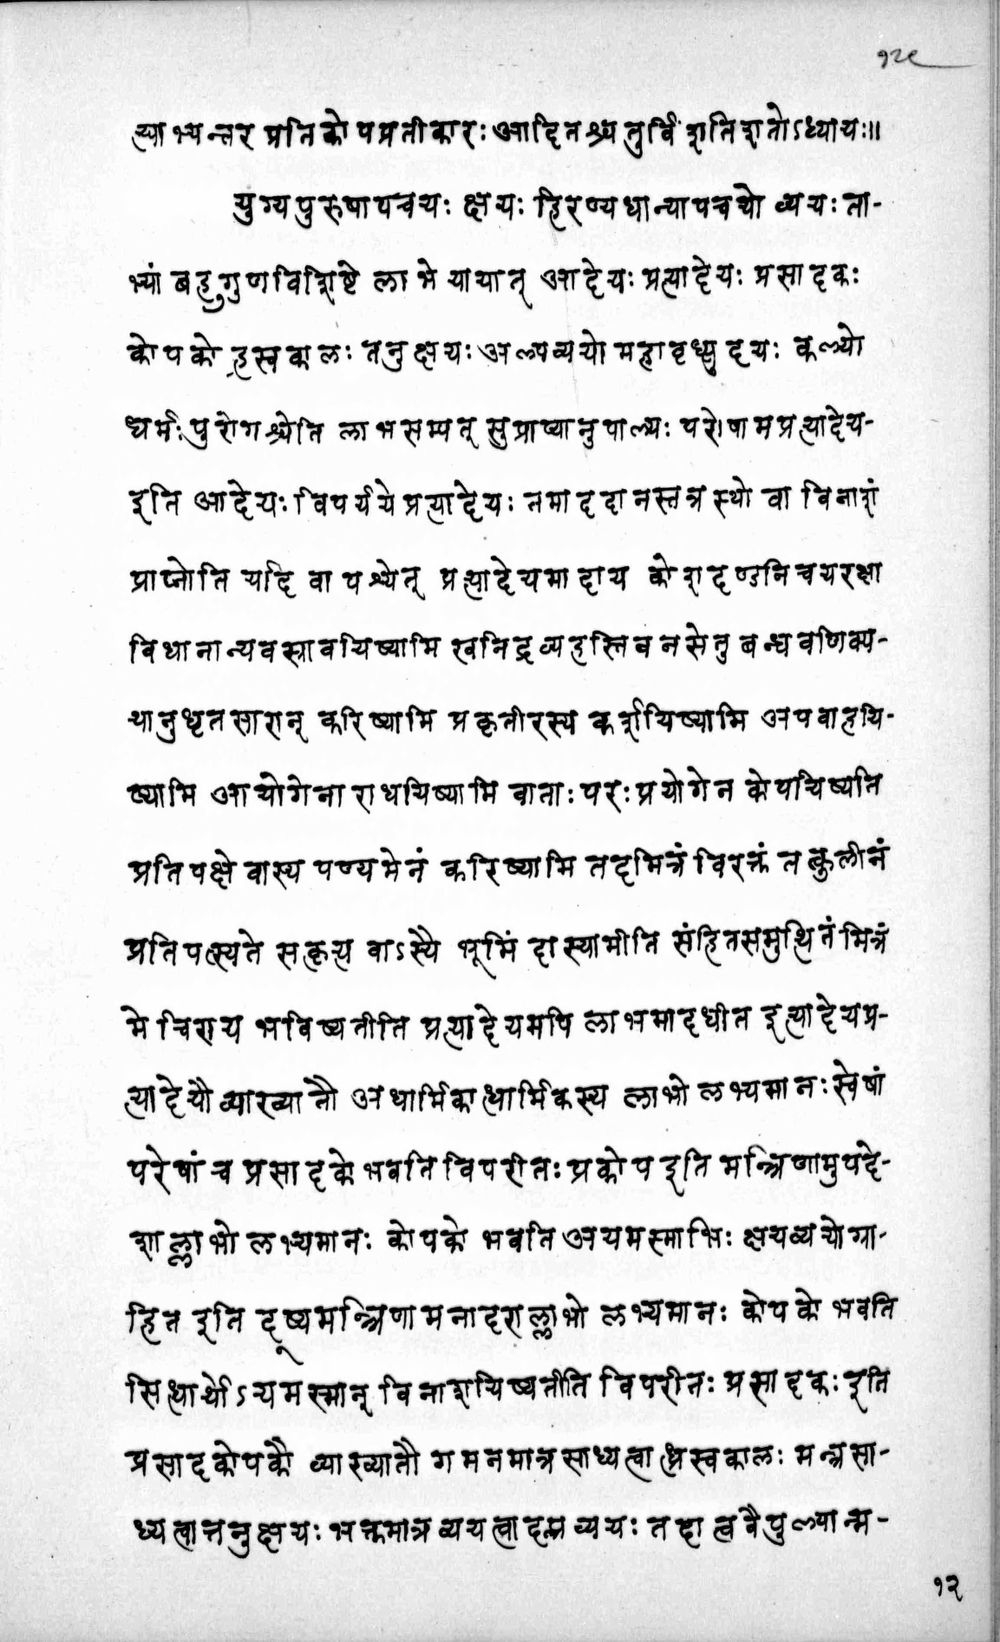 १२९
त्याभ्यन्तर प्रतिकोपप्रतीकारः आदितश्चतुर्विंशतिशतोऽध्यायः॥
युग्यपुरुषापचयः क्षयः हिरण्यधान्यापचयो व्ययः ता-
भ्यां बहुगुणविशिष्टे लाभे यायात् आदेयः प्रत्यादेयः प्रसादकः
कोपको ह्रस्वकालः तनुक्षयः अल्पव्ययो महावृध्युदयः कल्यो
धर्मः पुरोगश्चेति लाभसम्पत् सुप्राप्यानुपाल्यः परेषामप्रत्यादेय-
इति आदेयः विपर्यये प्रत्यादेयः तमाददानस्तत्रस्थो वा विनाशं
प्राप्नोति यदि वा पश्येत् प्रत्यादेयमादाय कोशदण्डनिचयरक्षा
विधानान्यवस्रावयिष्यामि खनिद्रव्यहस्तिवनसेतुबन्धवणिक्प-
थानुधृतसारान् करिष्यामि प्रकृतीरस्य कर्शयिष्यामि अपवाहयि-
ष्यामि आयोगेनाराधयिष्यामि वाताः परः प्रयोगेन कोपयिष्यति
प्रतिपक्षे वास्य पण्यमेनं करिष्यामि तदमित्रं विरक्तं तत्कुलीनं
प्रतिपत्स्यते सत्कृत्य वाऽस्यै भूमिं दास्यामीति संहितसमुत्थितं मित्रं
मे चिराय भविष्यतीति प्रत्यादेयमपि लाभमादधीत इत्यादेयप्र-
त्यादेयौ व्याख्यातौ अधार्मिकाद्धार्मिकस्य लाभो लभ्यमानः स्वेषां
परेषां च प्रसादको भवति विपरीतः प्रकोप इति मन्त्रिणामुपदे-
शाल्लाभो लभ्यमानः कोपको भवति अयमस्माभिः क्षयव्ययो ग्रा-
हित इति दूष्यमन्त्रिणामनादराल्लाभो लभ्यमानः कोपको भवति
सिद्धार्थोऽयमस्मान् विनाशयिष्यतीति विपरीतः प्रसादकः इति
प्रसादकोपकौ व्याख्यातौ गमनमात्रसाध्यत्वाद्ध्रस्वकालः मन्त्रसा-
ध्यत्वात्तनुक्षयः भक्तमात्रव्ययत्वादल्पव्ययः तदात्ववैपुल्यान्म-
१२